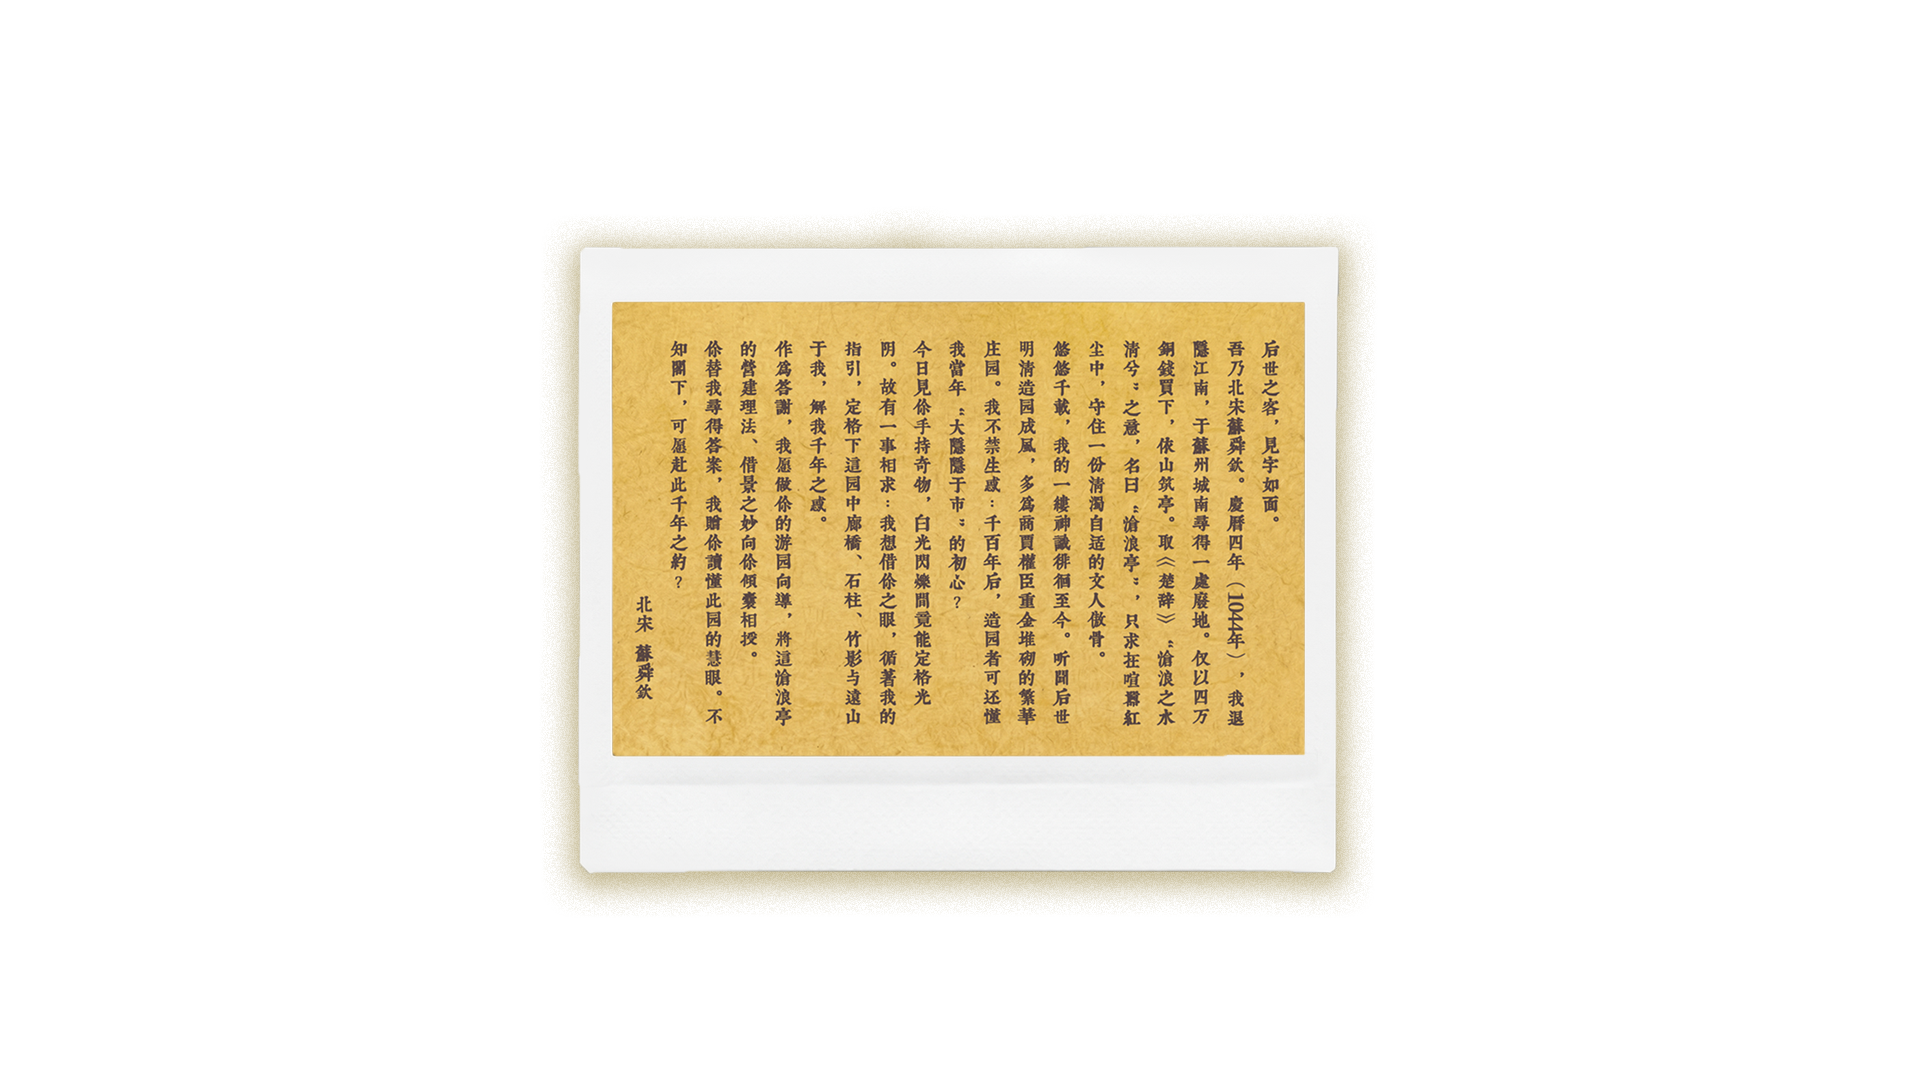 后世之客，見字如面。
吾乃北宋蘇舜欽。慶曆四年（1044年），我退
隱江南，于蘇州城南尋得一處廢地。仅以四万
銅錢買下，依山筑亭。取《楚辞》“滄浪之水
清兮”之意，名曰“滄浪亭”，只求在喧囂紅
尘中，守住一份清濁自适的文人傲骨。
悠悠千載，我的一縷神識徘徊至今。听聞后世
明清造园成風，多為商賈權臣重金堆砌的繁華
庄园。我不禁生惑：千百年后，造园者可还懂
我當年“大隱隱于市”的初心？
今日見你手持奇物，白光閃爍間竟能定格光
阴。故有一事相求：我想借你之眼，循著我的
指引，定格下這园中廊橋、石柱、竹影与遠山
于我，解我千年之惑。
作為答謝，我愿做你的游园向導，將這滄浪亭
的營建理法、借景之妙向你傾囊相授。
你替我尋得答案，我贈你讀懂此园的慧眼。不
知閣下，可愿赴此千年之約？
北宋 蘇舜欽